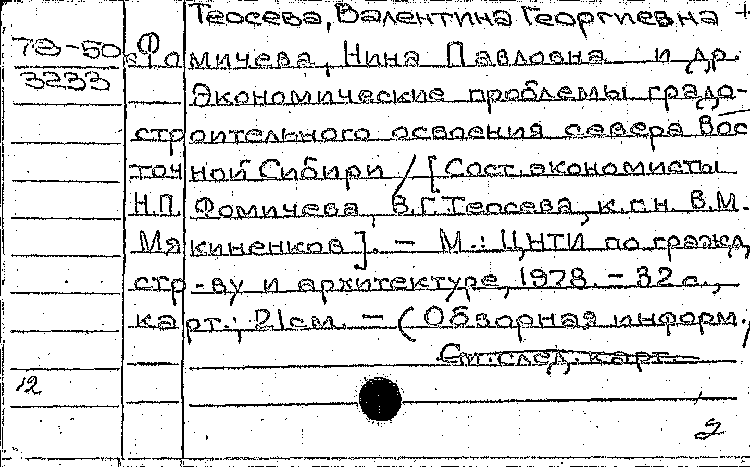 Теосева, Валентина Георгиевна +
78-50 Фо мичева, Нина Павловна и др.
3233
Экономические проблемы градо-
строительного освоения севера Вос
точной Сибири / [Сост. экономисты
Н.П. Фомичева, В.Г. Теосева, к.г.н. В.М.
Мякиненков]. – М.: ЦНТИ по гражд,
стр-ву и архитектуре, 1978. – 32 с.,
карт.; 21 см. – (Обзорная информ./
См. след. карт.
12
2